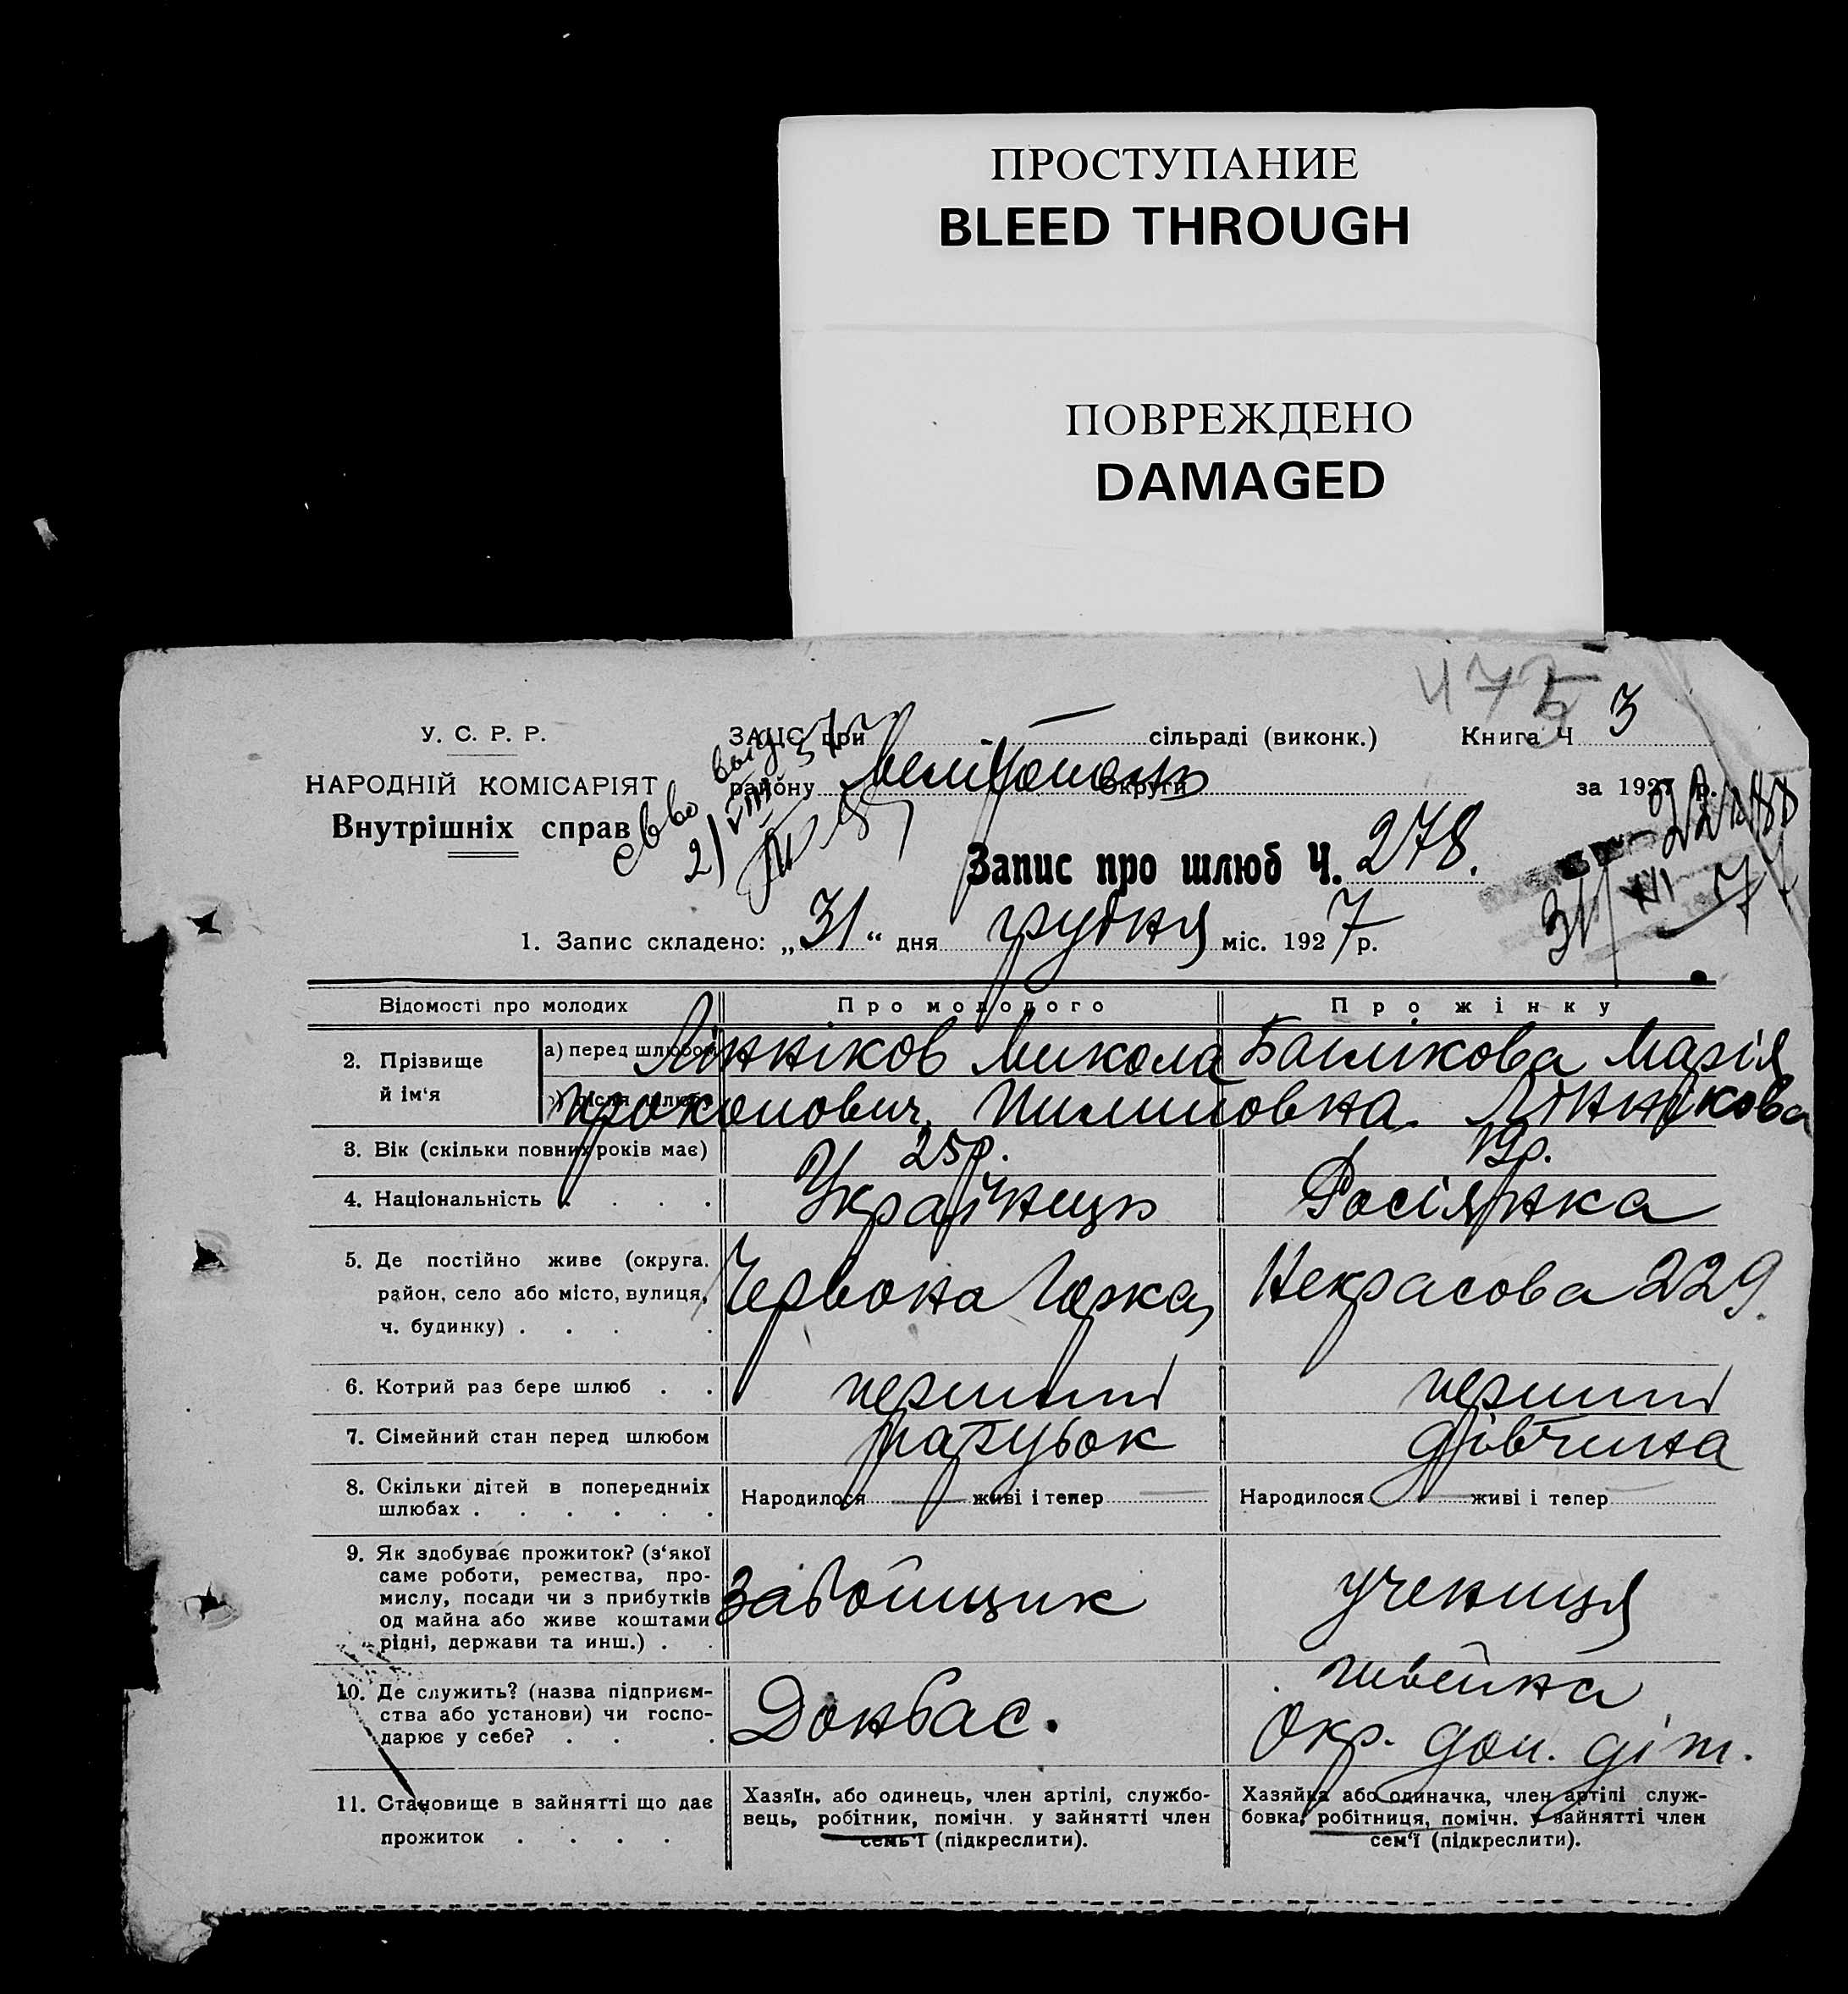 ПРОСТУПАНИЕ
BLEED THROUGH
ПОВРЕЖДЕНО
DAMAGED
475
У. С. Р. Р.
ЗАЦС при - сільраді (виконк.) Книга Ч 3
НАРОДНІЙ КОМІСАРІЯТ
району округи за 1927 р.
Внутрішніх справ
Запис про шлюб Ч. 278.
31/XII 27
1. Запис складено: „31“ дня грудня міс. 1927 р.
Відомості про молодих Про молодого Про жінку
2. Прізвище й ім‘я
а) перед шлюбом Лінніков Микола Башикова Марія
б) після шлюбу Прокопович. Пилиповна. Ліннікова
3. Вік (скільки повних років має) 25р. 19р.
4. Національність . . . . Українець Росіянка
5. Де постійно живе (округа.
район, село або місто, вулиця, Червона Горка, Некрасова 229.
ч. будинку) . . . .
6. Котрий раз бере шлюб . . перший перший
7. Сімейний стан перед шлюбом парубок дівчина
8. Скільки дітей в попередніх
шлюбах . . . . . . Народилося — живі і тепер — Народилося — живі і тепер —
9. Як здобуває прожиток? (з‘якої
саме роботи, ремества, про-
мислу, посади чи з прибутків
од майна або живе коштами
рідні, держави та инш.) . .
Забойщик ученица
швейка
10. Де служить? (назва підприєм-
ства або установи) чи госпо-
дарює у себе? . . .
Донбас. Окр. доп. діт.
11. Становище в зайнятті що дає
прожиток . . . .
Хазяїн, або одинець, член артілі, службо-
вець, робітник, помічн. у зайнятті член
семь‘ї (підкреслити).
Хазяйка або одиначка, член артілі служ-
бовка, робітниця, помічн. у зайнятті член
сем‘ї (підкреслити).